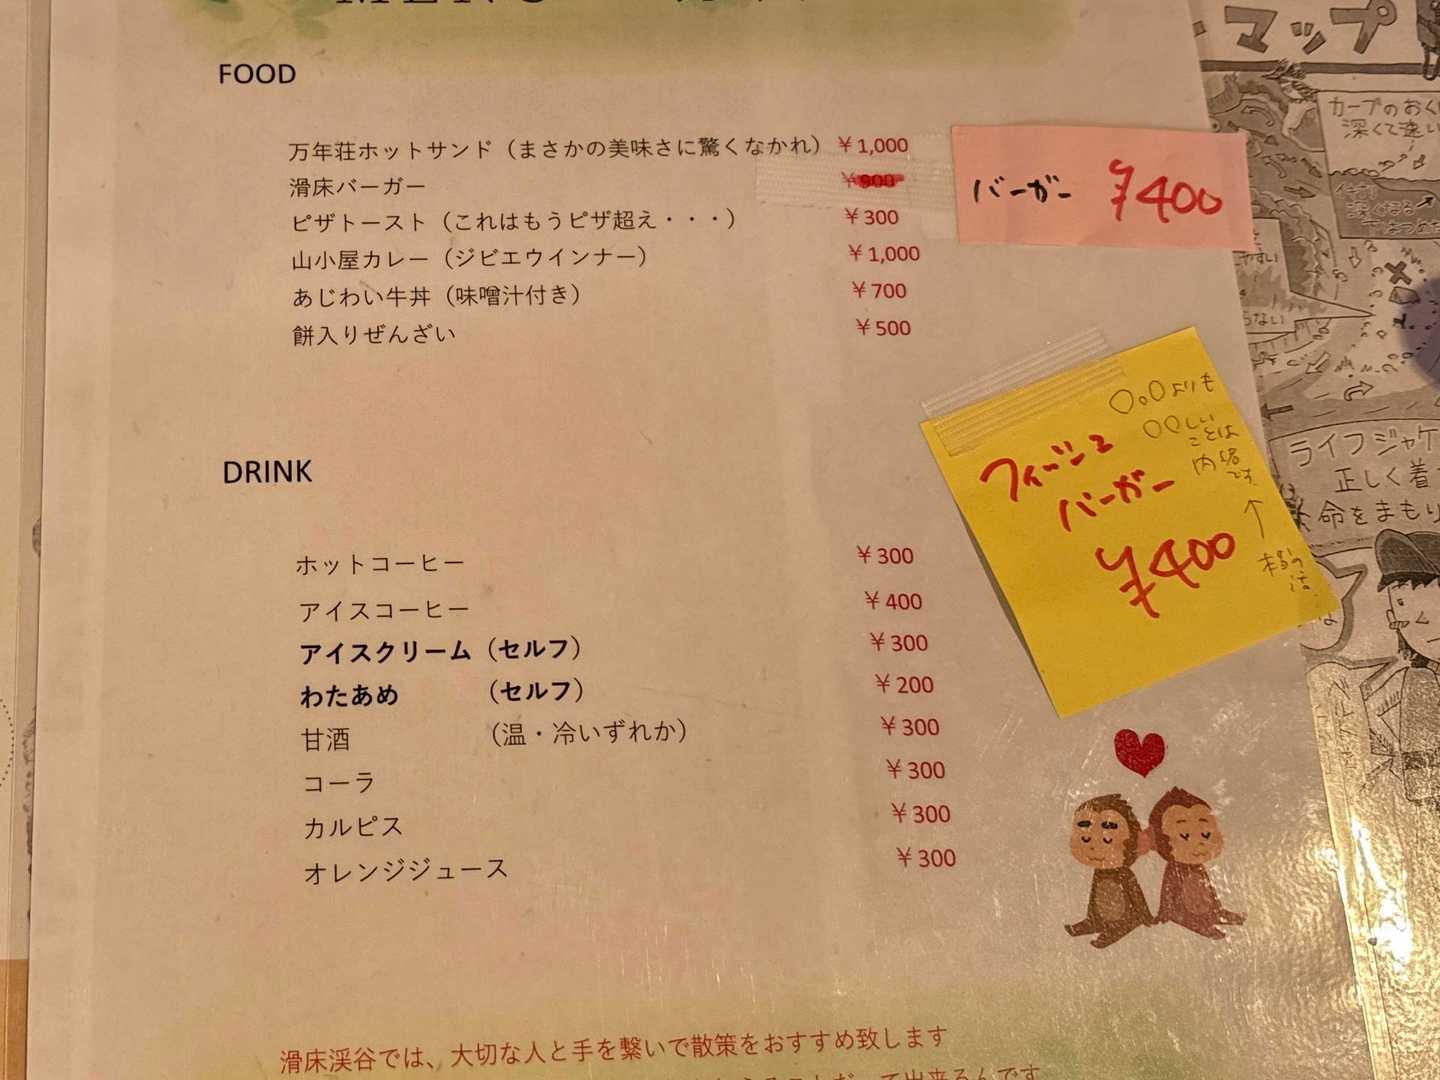 MENU
FOOD
万年荘ホットサンド（まさかの美味さに驚くなかれ） ￥1,000
滑床バーガー ￥900
バーガー ￥400
ピザトースト（これはもうピザ超え・・・） ￥300
山小屋カレー（ジビエウインナー） ￥1,000
あじわい牛丼（味噌汁付き） ￥700
餅入りぜんざい ￥500
フィッシュ
バーガー
￥400
〇〇よりも
〇〇しい
ことは
内緒
です
↑
DRINK
ホットコーヒー ￥300
アイスコーヒー ￥400
アイスクリーム（セルフ） ￥300
わたあめ （セルフ） ￥200
甘酒 （温・冷いずれか） ￥300
コーラ ￥300
カルピス ￥300
オレンジジュース ￥300
滑床渓谷では、大切な人と手を繋いで散策をおすすめ致します
マップ
カーブのおく
深くて速い
ライフジャケ
正しく着
命をまもり